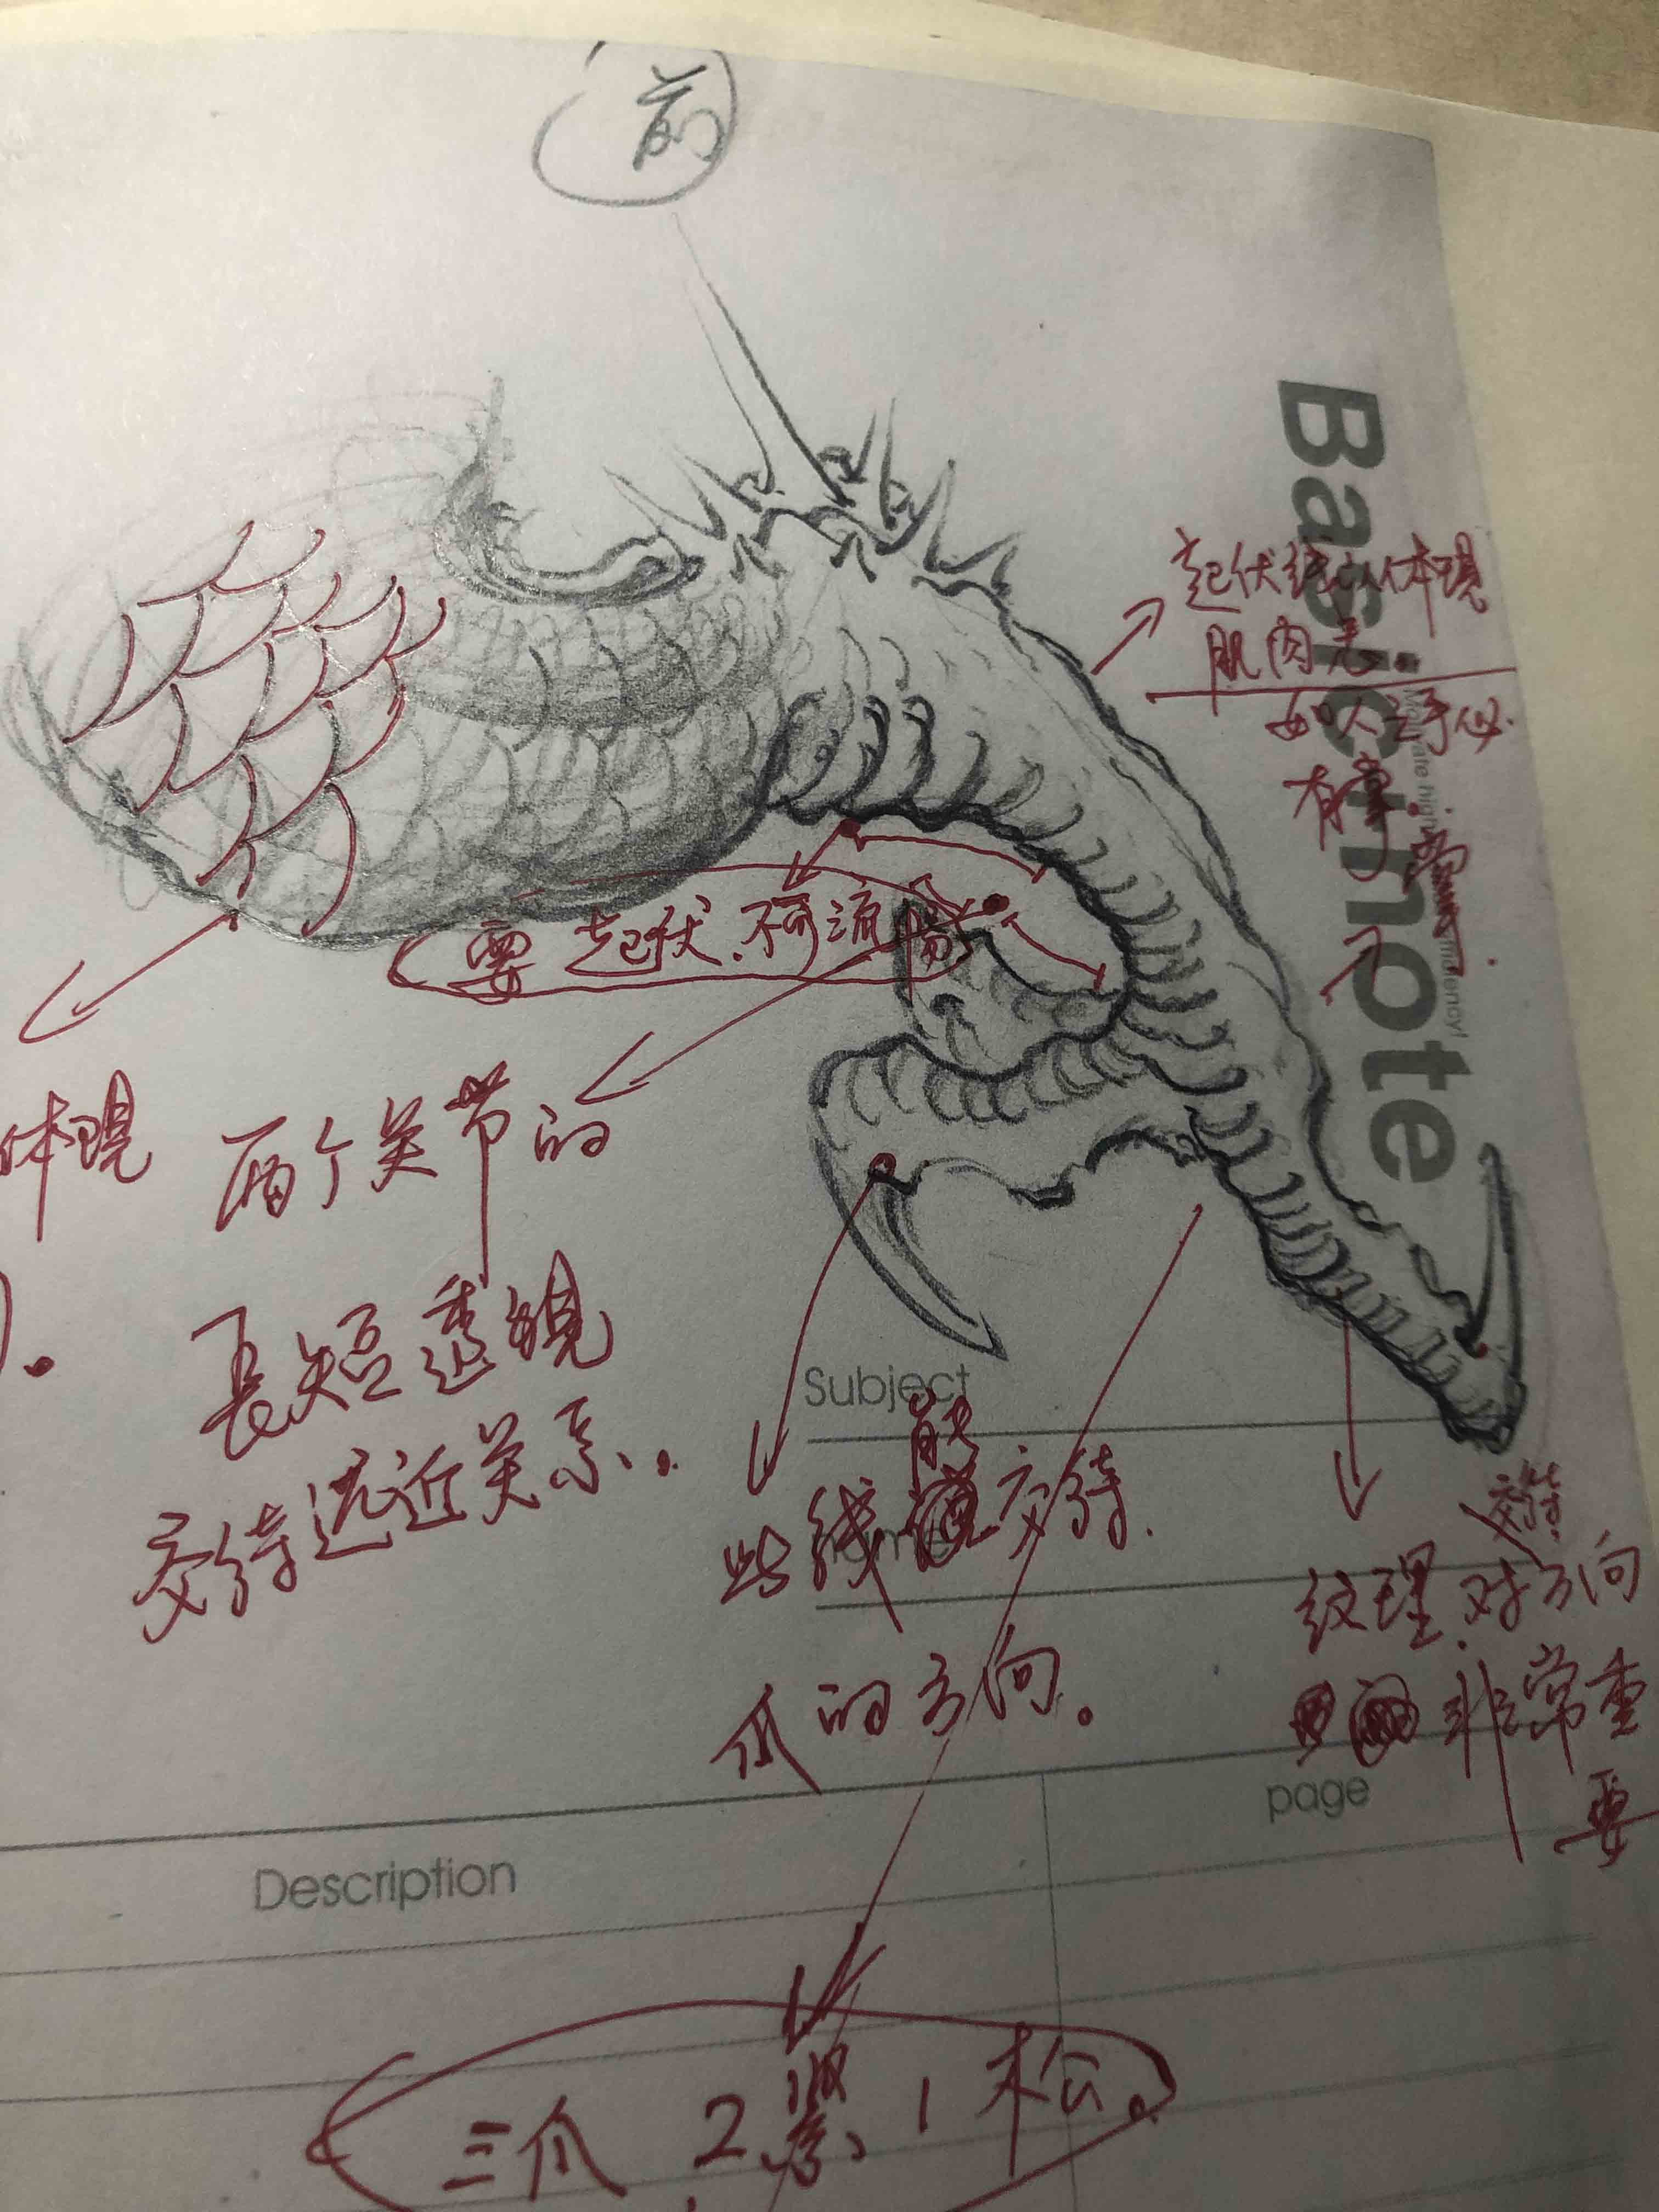 前
Basic note
起伏线以体现
肌肉老.
如人之手必
有掌.
要起伏.不可流畅
体现
两个关节的
長短透視
交待远近关系.
Subject
此线能交待.
爪的方向.
交待.
纹理.对方向
非常重
要
page
Description
三爪.2紧、1松.